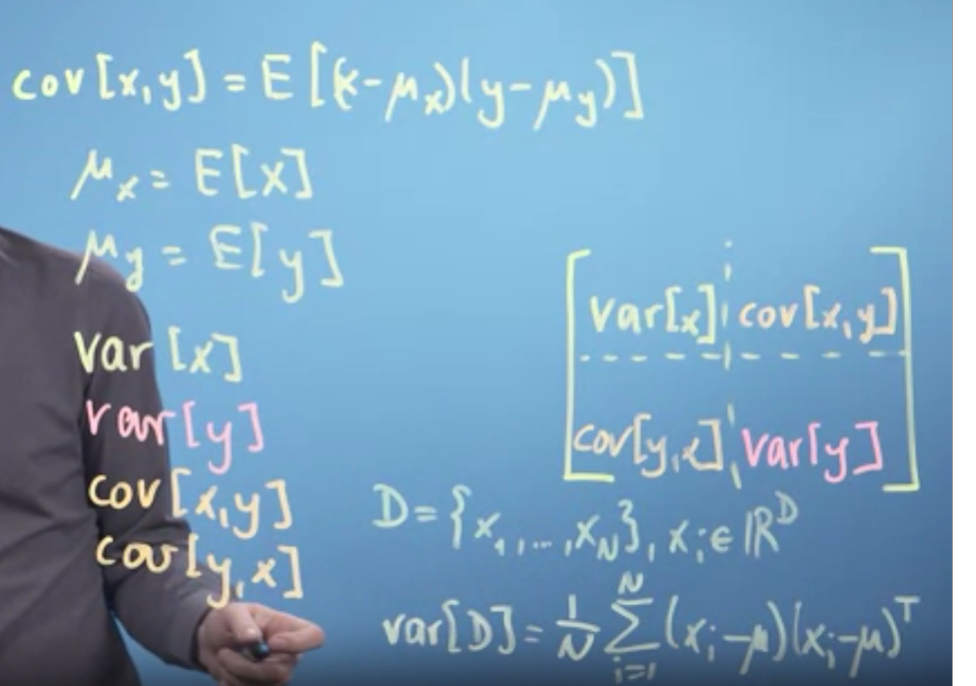 cov[x,y] = E[(x-μx)(y-μy)]
μx = E[x]
μy = E[y]
var[x]
var[y]
cov[x,y]
cov[y,x]
var[x] cov[x,y]
cov[y,x] var[y]
D = {x₁,...,x_N}, xᵢ ∈ ℝᴰ
var[D] = 1/N Σ_{i=1}^{N} (xᵢ-μ)(xᵢ-μ)ᵀ